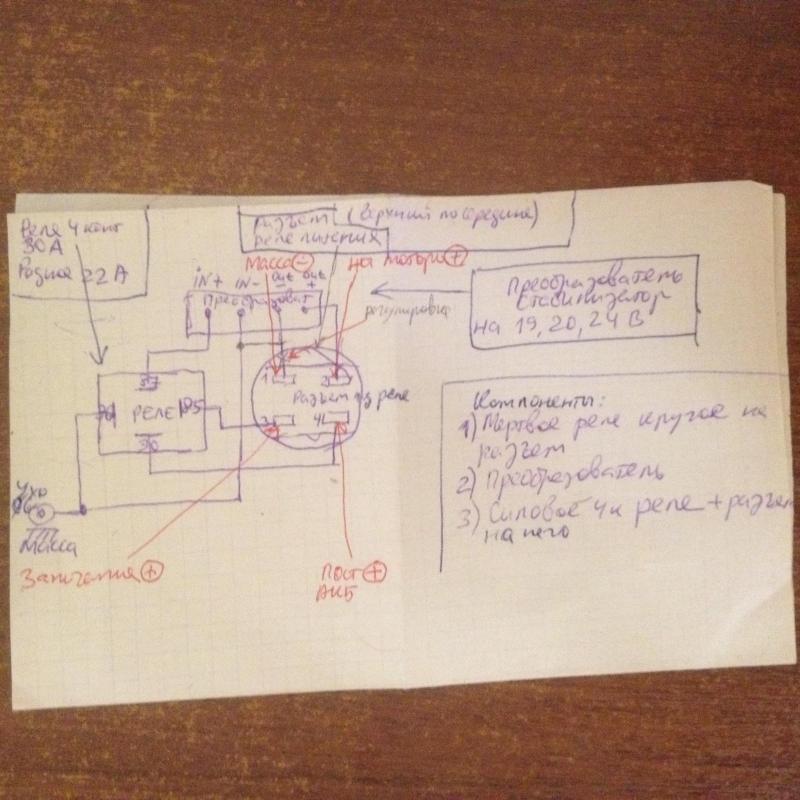 Реле 4 конт
30А
Родное 22А
разъем (верхний посередине)
реле питания
Масса -
на моторы +
IN+ IN- Out - Out +
Преобразоват
регулировка
Преобразователь
Стабилизатор
на 19, 20, 24 В
87
1 2
86 РЕЛЕ 85
Разъем из реле
3 4
30
Ухо
Масса
Зажигание +
Пост +
АКБ
Компоненты:
1) Мертвое реле круглое на
разъем
2) Преобразователь
3) Силовое 4к реле + разъем
на него